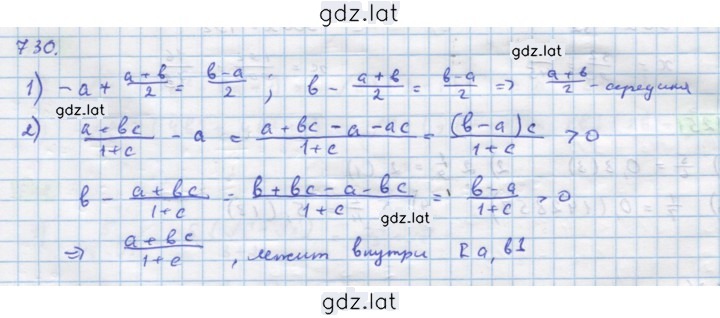 gdz.lat
730.
gdz.lat
1) -a + \frac{a+b}{2} = \frac{b-a}{2} ; b - \frac{a+b}{2} = \frac{b-a}{2} => \frac{a+b}{2} - середина
gdz.lat
2) \frac{a+bc}{1+c} - a = \frac{a+bc-a-ac}{1+c} = \frac{(b-a)c}{1+c} > 0
b - \frac{a+bc}{1+c} = \frac{b+bc-a-bc}{1+c} = \frac{b-a}{1+c} > 0
gdz.lat
=> \frac{a+bc}{1+c}, лежит внутри [a, b]
gdz.lat